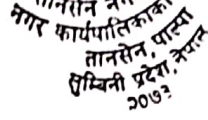 नगर कार्यपालिकाको
तानसेन, पाल्पा
लुम्बिनी प्रदेश, नेपाल
२०७३